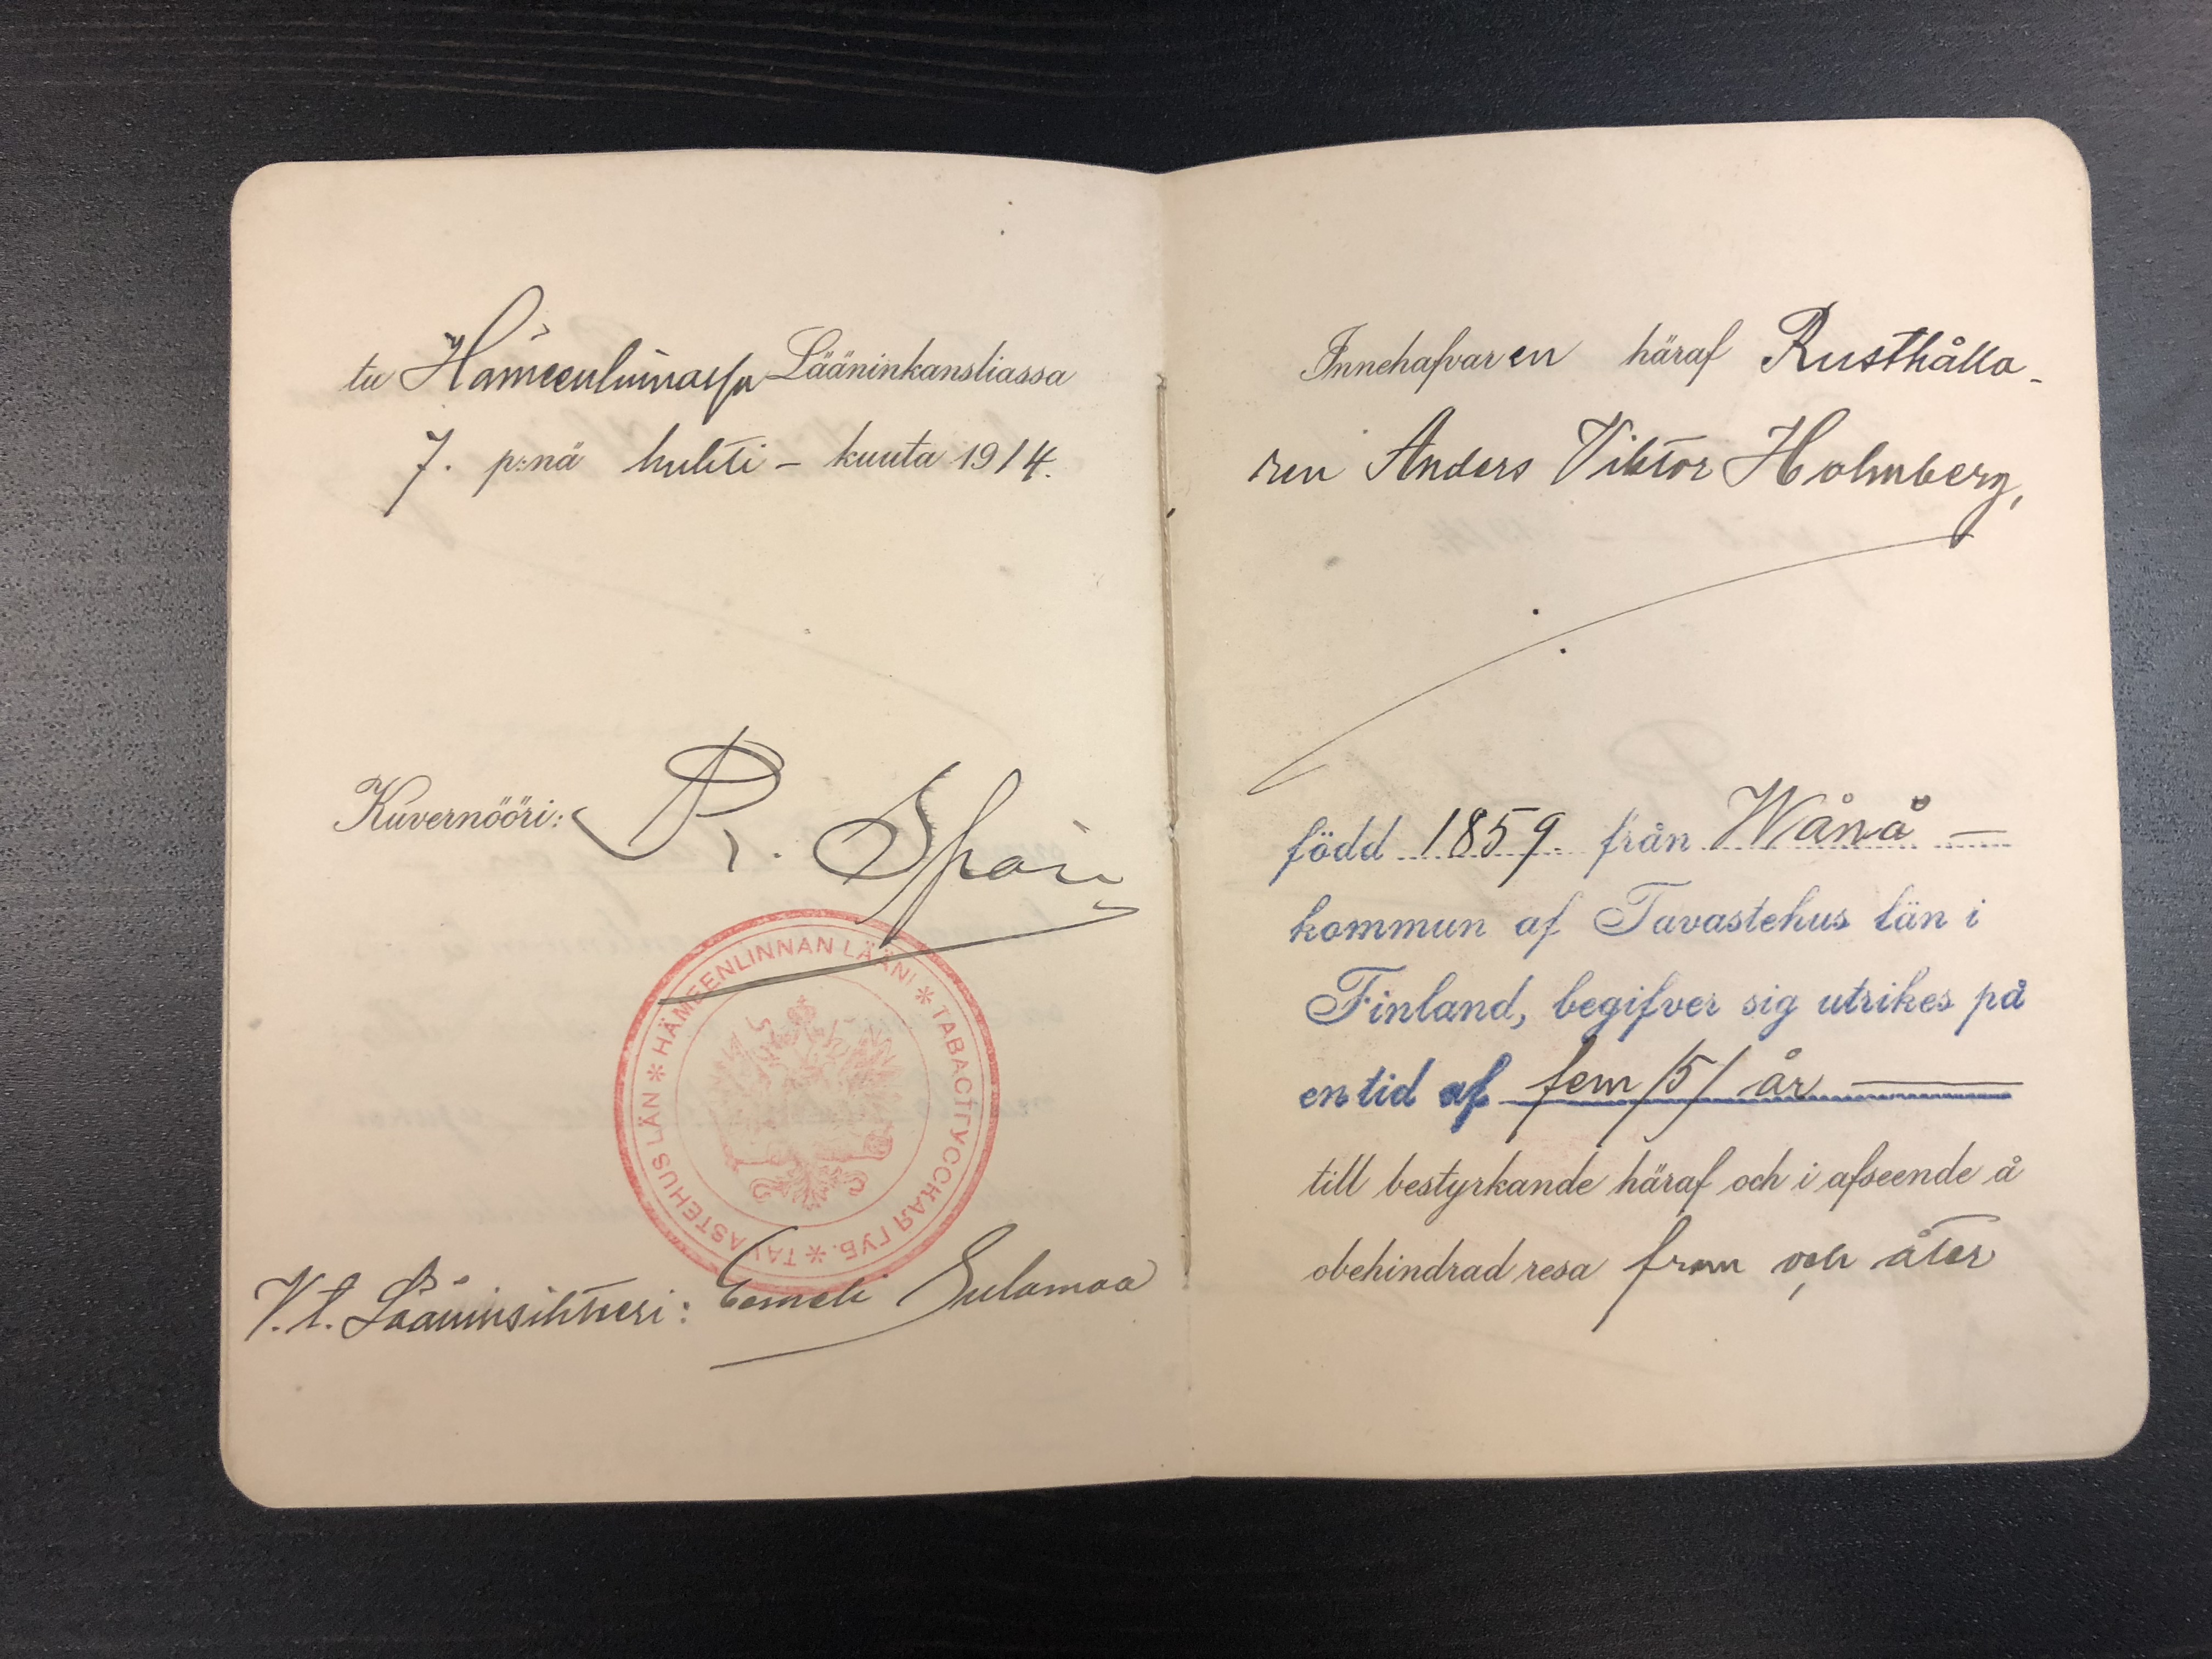 tu Hämeenlinnassa Lääninkansliassa
7. p:nä huhti - kuuta 1914.
Kuvernööri: R. Spåre
HÄMEENLINNAN LÄÄNI * ТАВАСТГУССКАЯ ГУБ. * TAVASTEHUS LÄN *
V.t. Lääninsihteeri: Eemeli Sulamaa
Innehafvaren häraf Rusthålla-
ren Anders Viktor Holmberg,
född 1859. från Wånå —
kommun af Tavastehus län i
Finland, begifver sig utrikes på
en tid af fem /5/ år
till bestyrkande häraf och i afseende å
obehindrad resa fram och åter